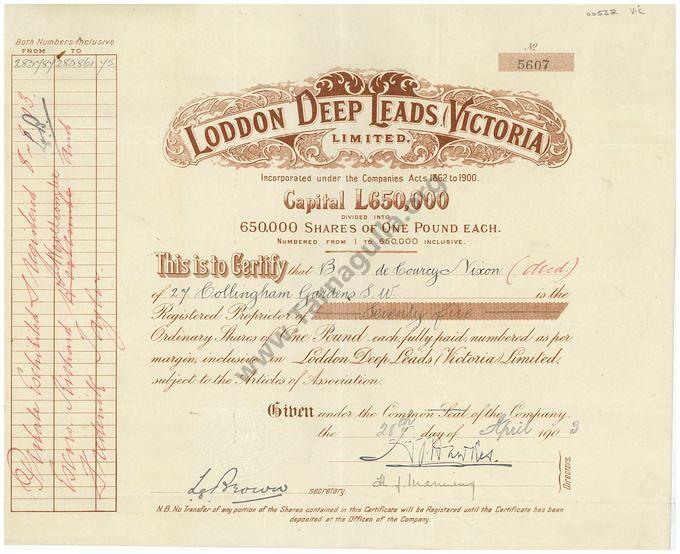 00532 Vic
Both Numbers Inclusive
FROM TO
283787 283861 75
Nº
5607
LODDON DEEP LEADS (VICTORIA)
LIMITED.
Incorporated under the Companies Acts 1862 to 1900.
Capital £650,000
DIVIDED INTO
650,000 SHARES OF ONE POUND EACH.
NUMBERED FROM 1 TO 650,000 INCLUSIVE.
This is to Certify that B de Courcy Nixon (decd.)
of 27 Collingham Gardens S.W. is the
Registered Proprietor of Seventy five
Ordinary Shares of One Pound each, fully paid, numbered as per
margin, inclusive in Loddon Deep Leads (Victoria) Limited,
subject to the Articles of Association.
Given under the Common Seal of the Company,
the 28th day of April 1903
Directors.
L G Brown secretary.
H J Manning
N.B. No Transfer of any portion of the Shares contained in this Certificate will be Registered until the Certificate has been
deposited at the Offices of the Company.
Probate Exhibited & Registered
and
Frederick Taylor
www.Tarnagulla.org